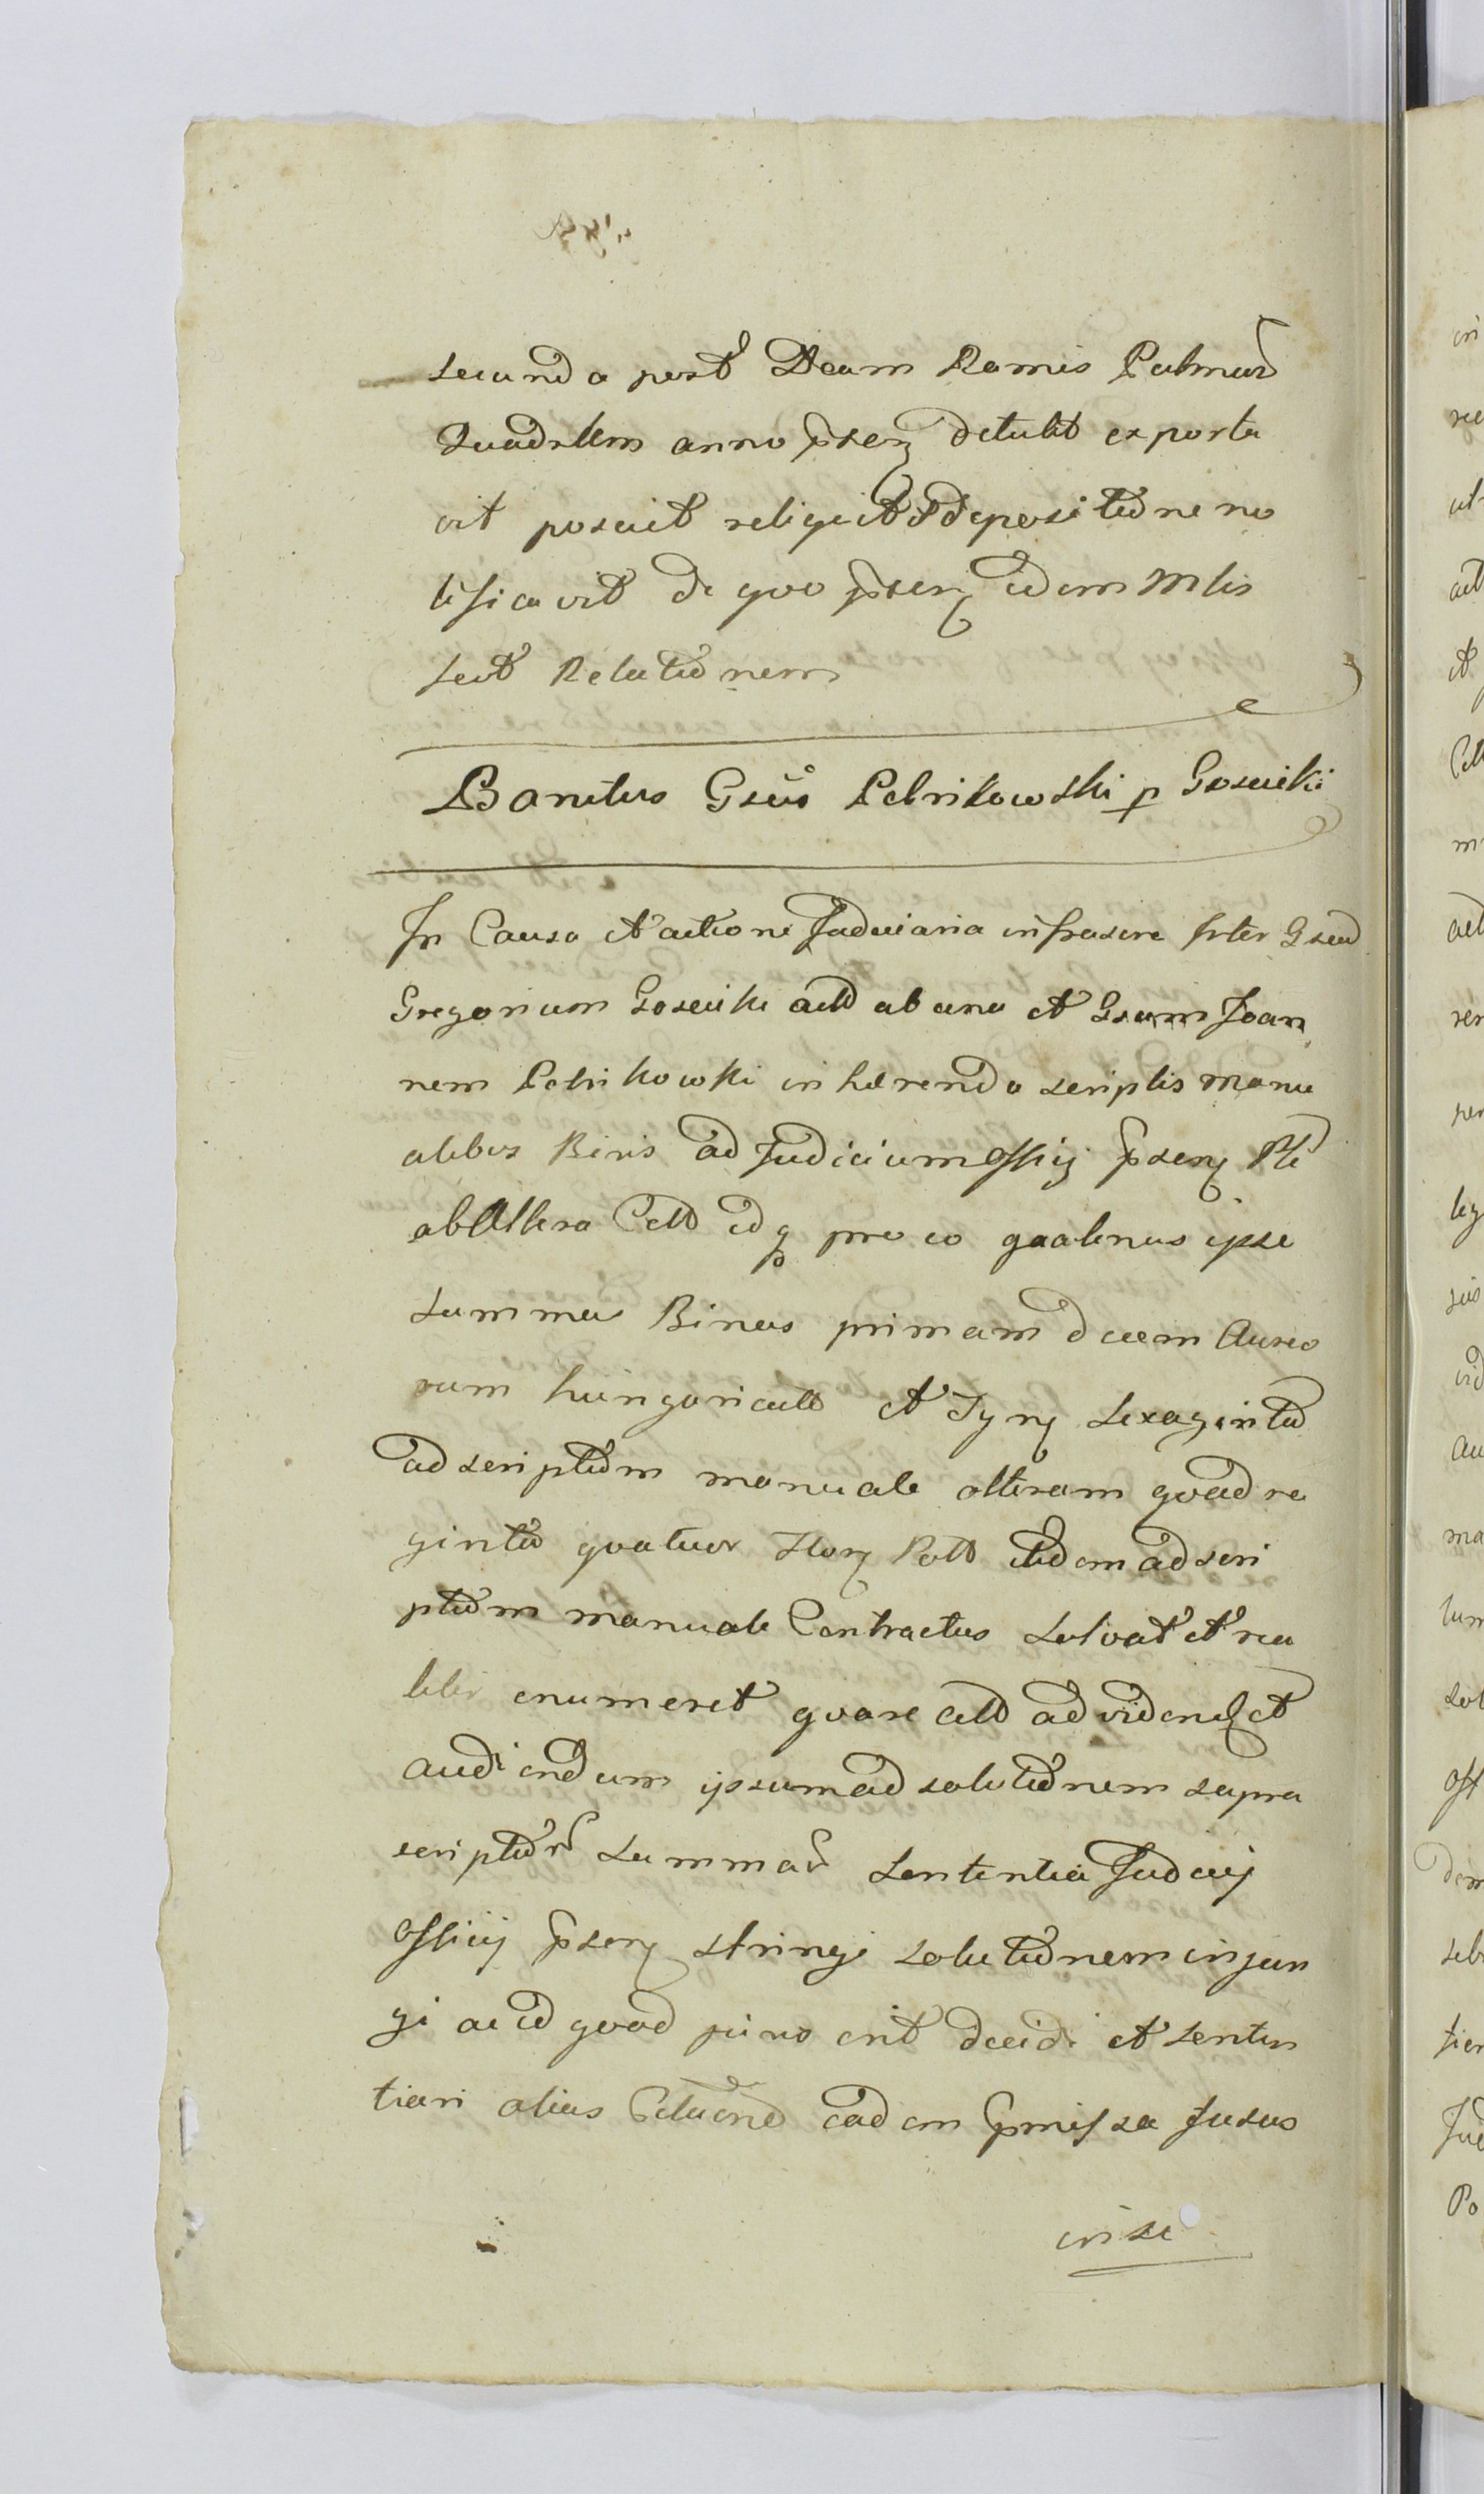 secunda post Dcam Ramis Palmar
Quadrlem anno psenz detulit exporta
vit posuit reliquit et depositione no
tificavit de quo psenz idem Mlis
fecit Relationem
Banitus Gsus Petrikowski p Gosucki
In Causa et actione Judiciaria infrascre Inter Gsum
Gregorium Gosucki actt ab una et Gsum Joan
nem Petrikowki inhærendo scriptis manu
alibus Binis ad Judicium Officij psenz
ab Altera Citt idq pro eo qaatenus ipse
summas Binas primam decem Aureo
rum hungaricall et Tynz sexaginta
ad scriptum manuale alteram quadra
ginta quatuor Flor Poll itidem ad scri
ptum manuale Contractus solvat et rea
liter enumeret quare Citt ad videndz et
audiendum ipsum ad solutionem supra
scriptar summar sententia Judicij
Officij psenz stringi solutionem injun
gi ac id quod juris erit decidi et senten
tiari alias Cittaone eadem pmissa fusius
in se